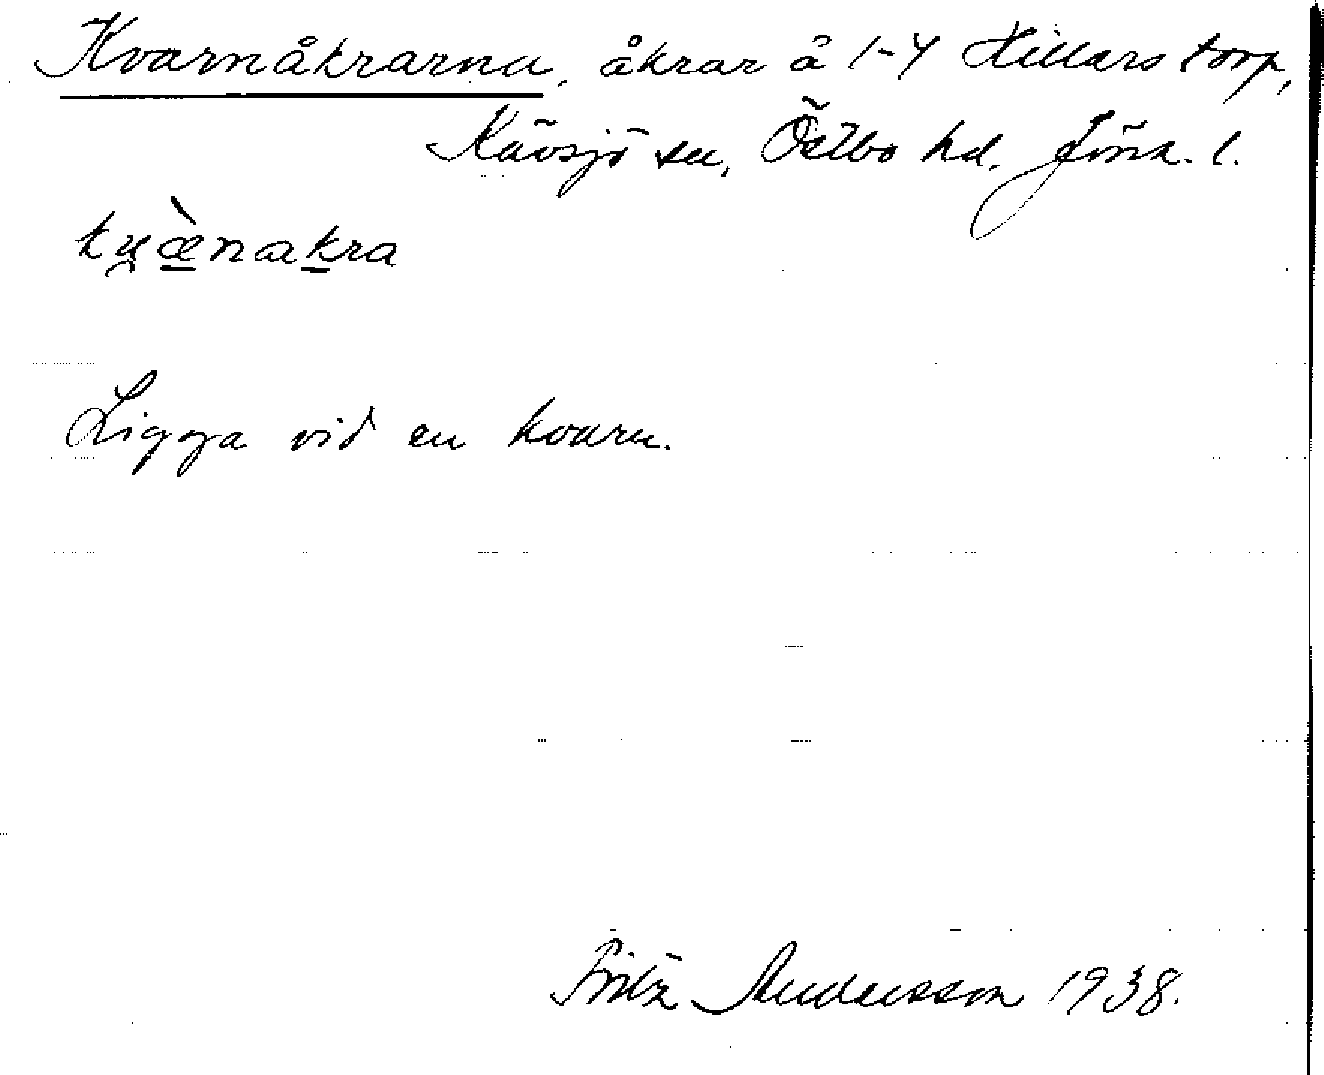 Kvarnåkrarna, åkrar å 1-4 Hillerstorp,
Kävsjö sn, Östbo hd. Jönk. l.
kṷæ̀nakra
Ligga vid en kvarn.
Fritz Andersson 1938.